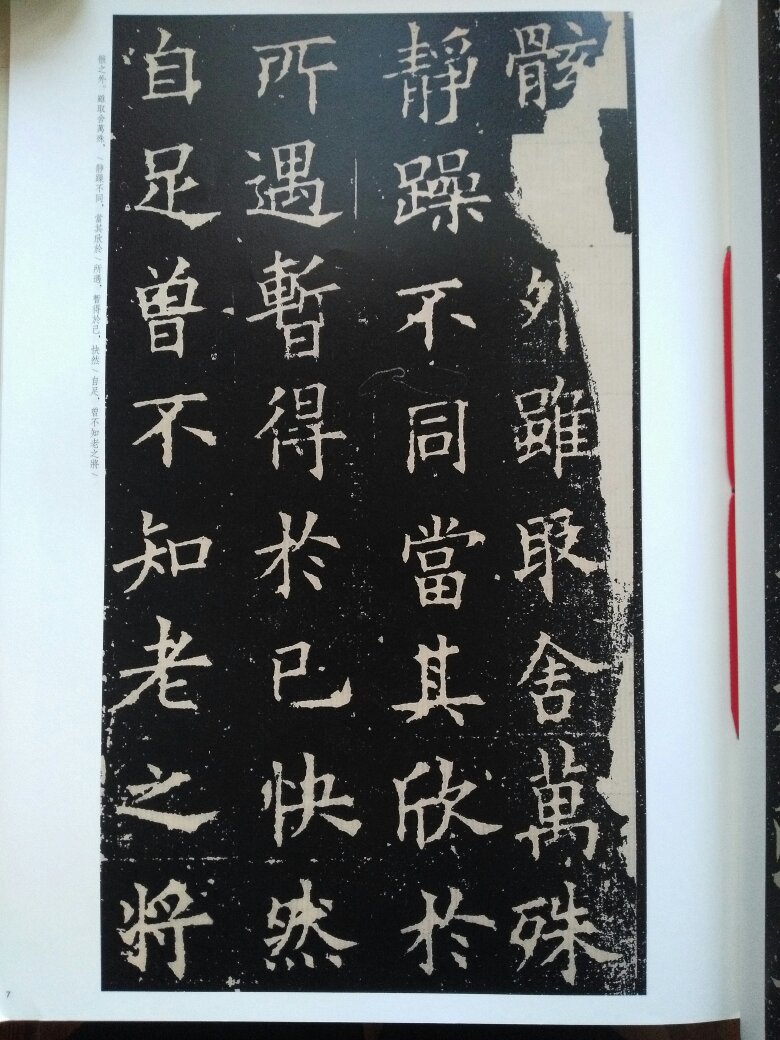 骸外雖取舍萬殊
靜躁不同當其欣於
所遇暫得於已快然
自足曾不知老之将
骸之外。雖取舍萬殊，/靜躁不同，當其欣於/所遇，暫得於己，快然/自足，曾不知老之將/
7